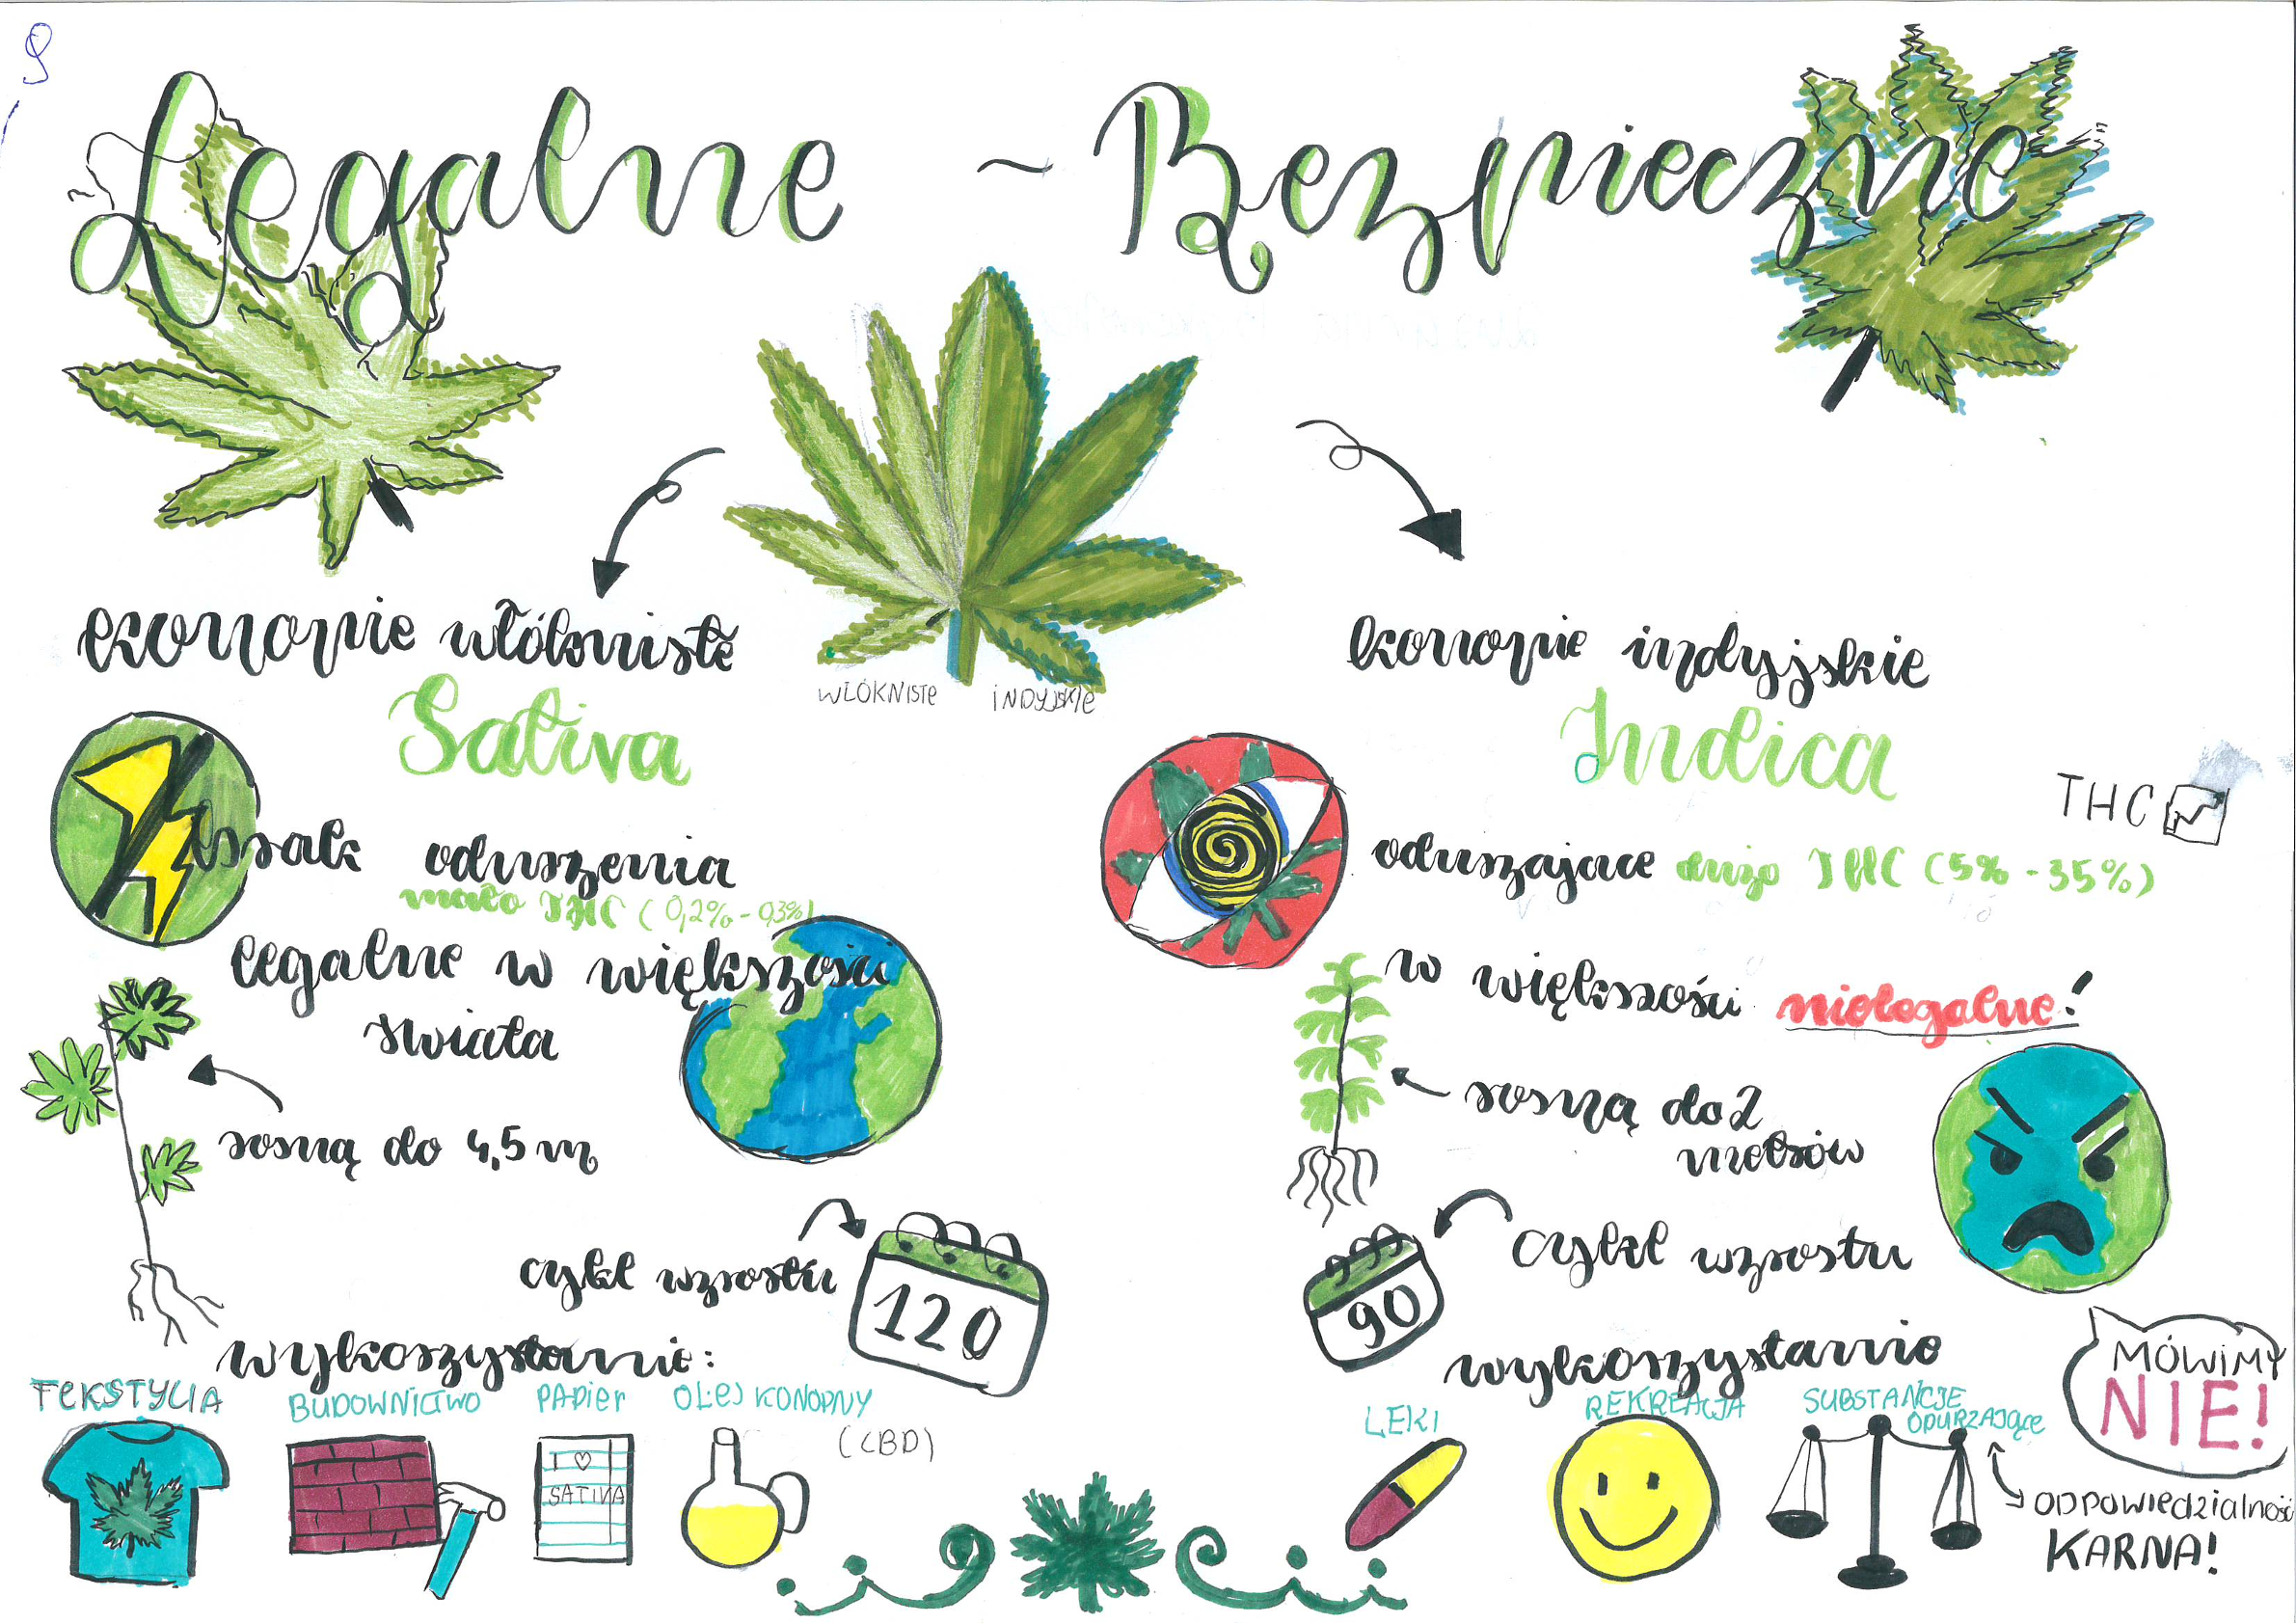 Legalne ~ Bezpieczne
WŁÓKNISTE INDYJSKIE
konopie włókniste
Sativa
brak odurzenia
mało THC (0,2% - 0,3%)
legalne w większości
świata
rosną do 4,5 m
cykl wzrostu
120
wykorzystanie:
TEKSTYLIA
BUDOWNICTWO
PAPIER
I ♡
SATIVA
OLEJ KONOPNY
(CBD)
konopie indyjskie
Indica
THC
odurzające dużo THC (5% - 35%)
w większości nielegalne!
rosną do 2
metrów
cykl wzrostu
90
wykorzystanie
LEKI
REKREACJA
SUBSTANCJE
ODURZAJĄCE
ODPOWIEDZIALNOŚĆ
KARNA!
MÓWIMY
NIE!